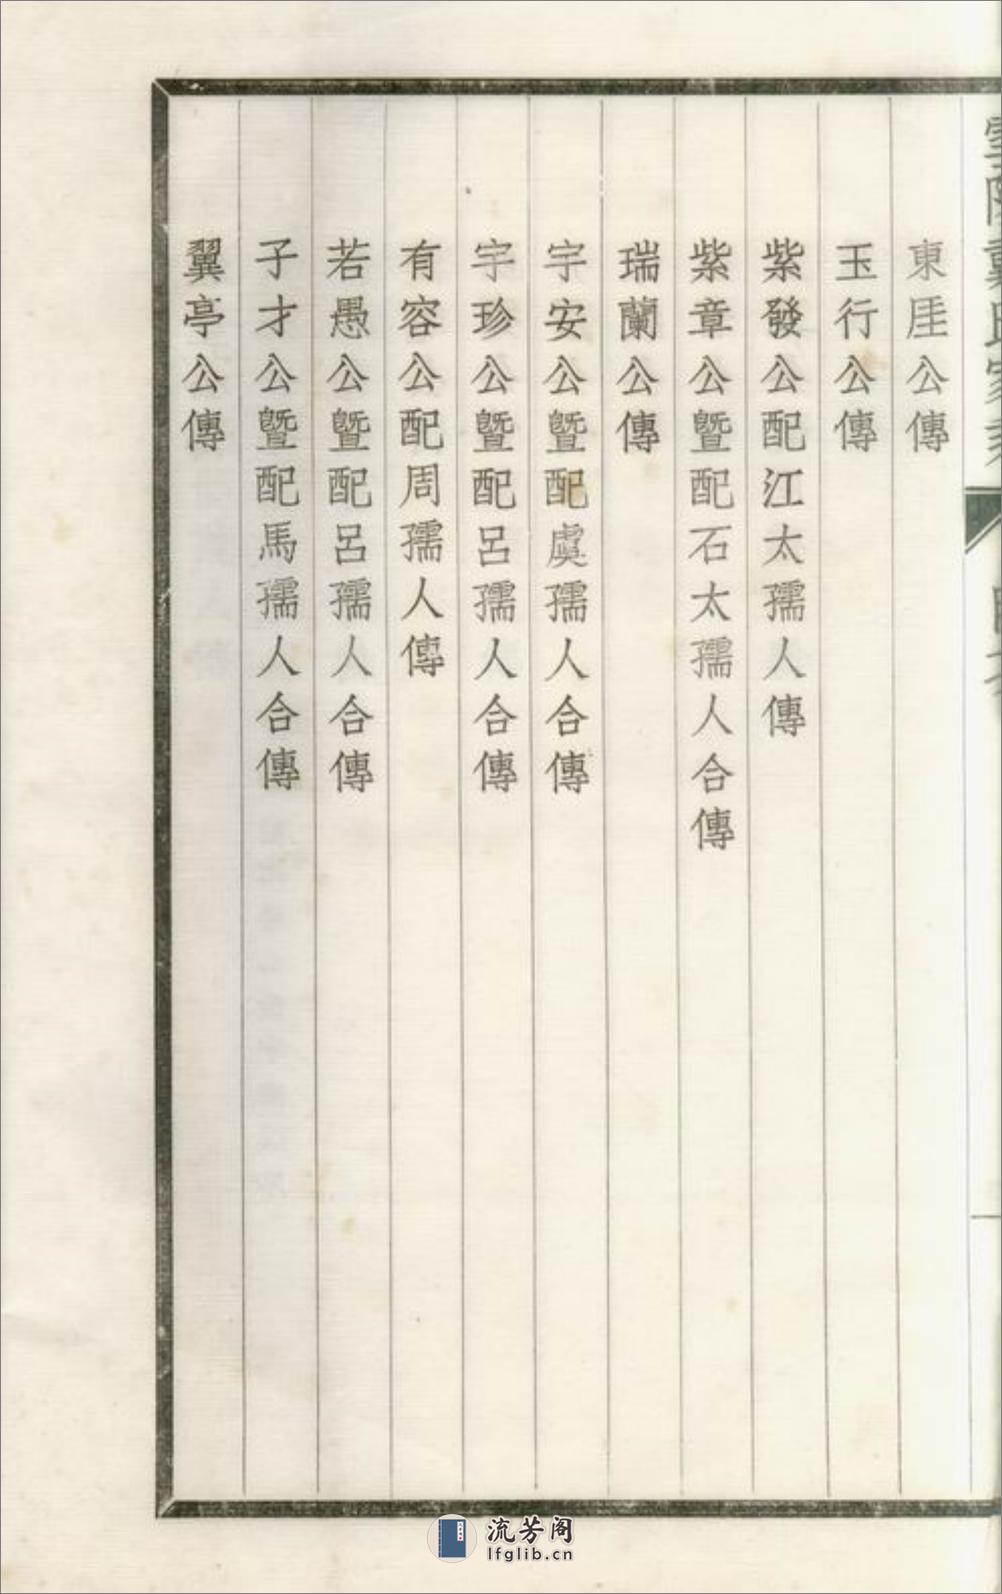 東厓公傳
玉行公傳
紫發公配江太孺人傳
紫章公暨配石太孺人合傳
瑞蘭公傳
宇安公暨配虞孺人合傳
宇珍公暨配呂孺人合傳
有容公配周孺人傳
若愚公暨配呂孺人合傳
子才公暨配馬孺人合傳
翼亭公傳
流芳阁
lfglib.cn